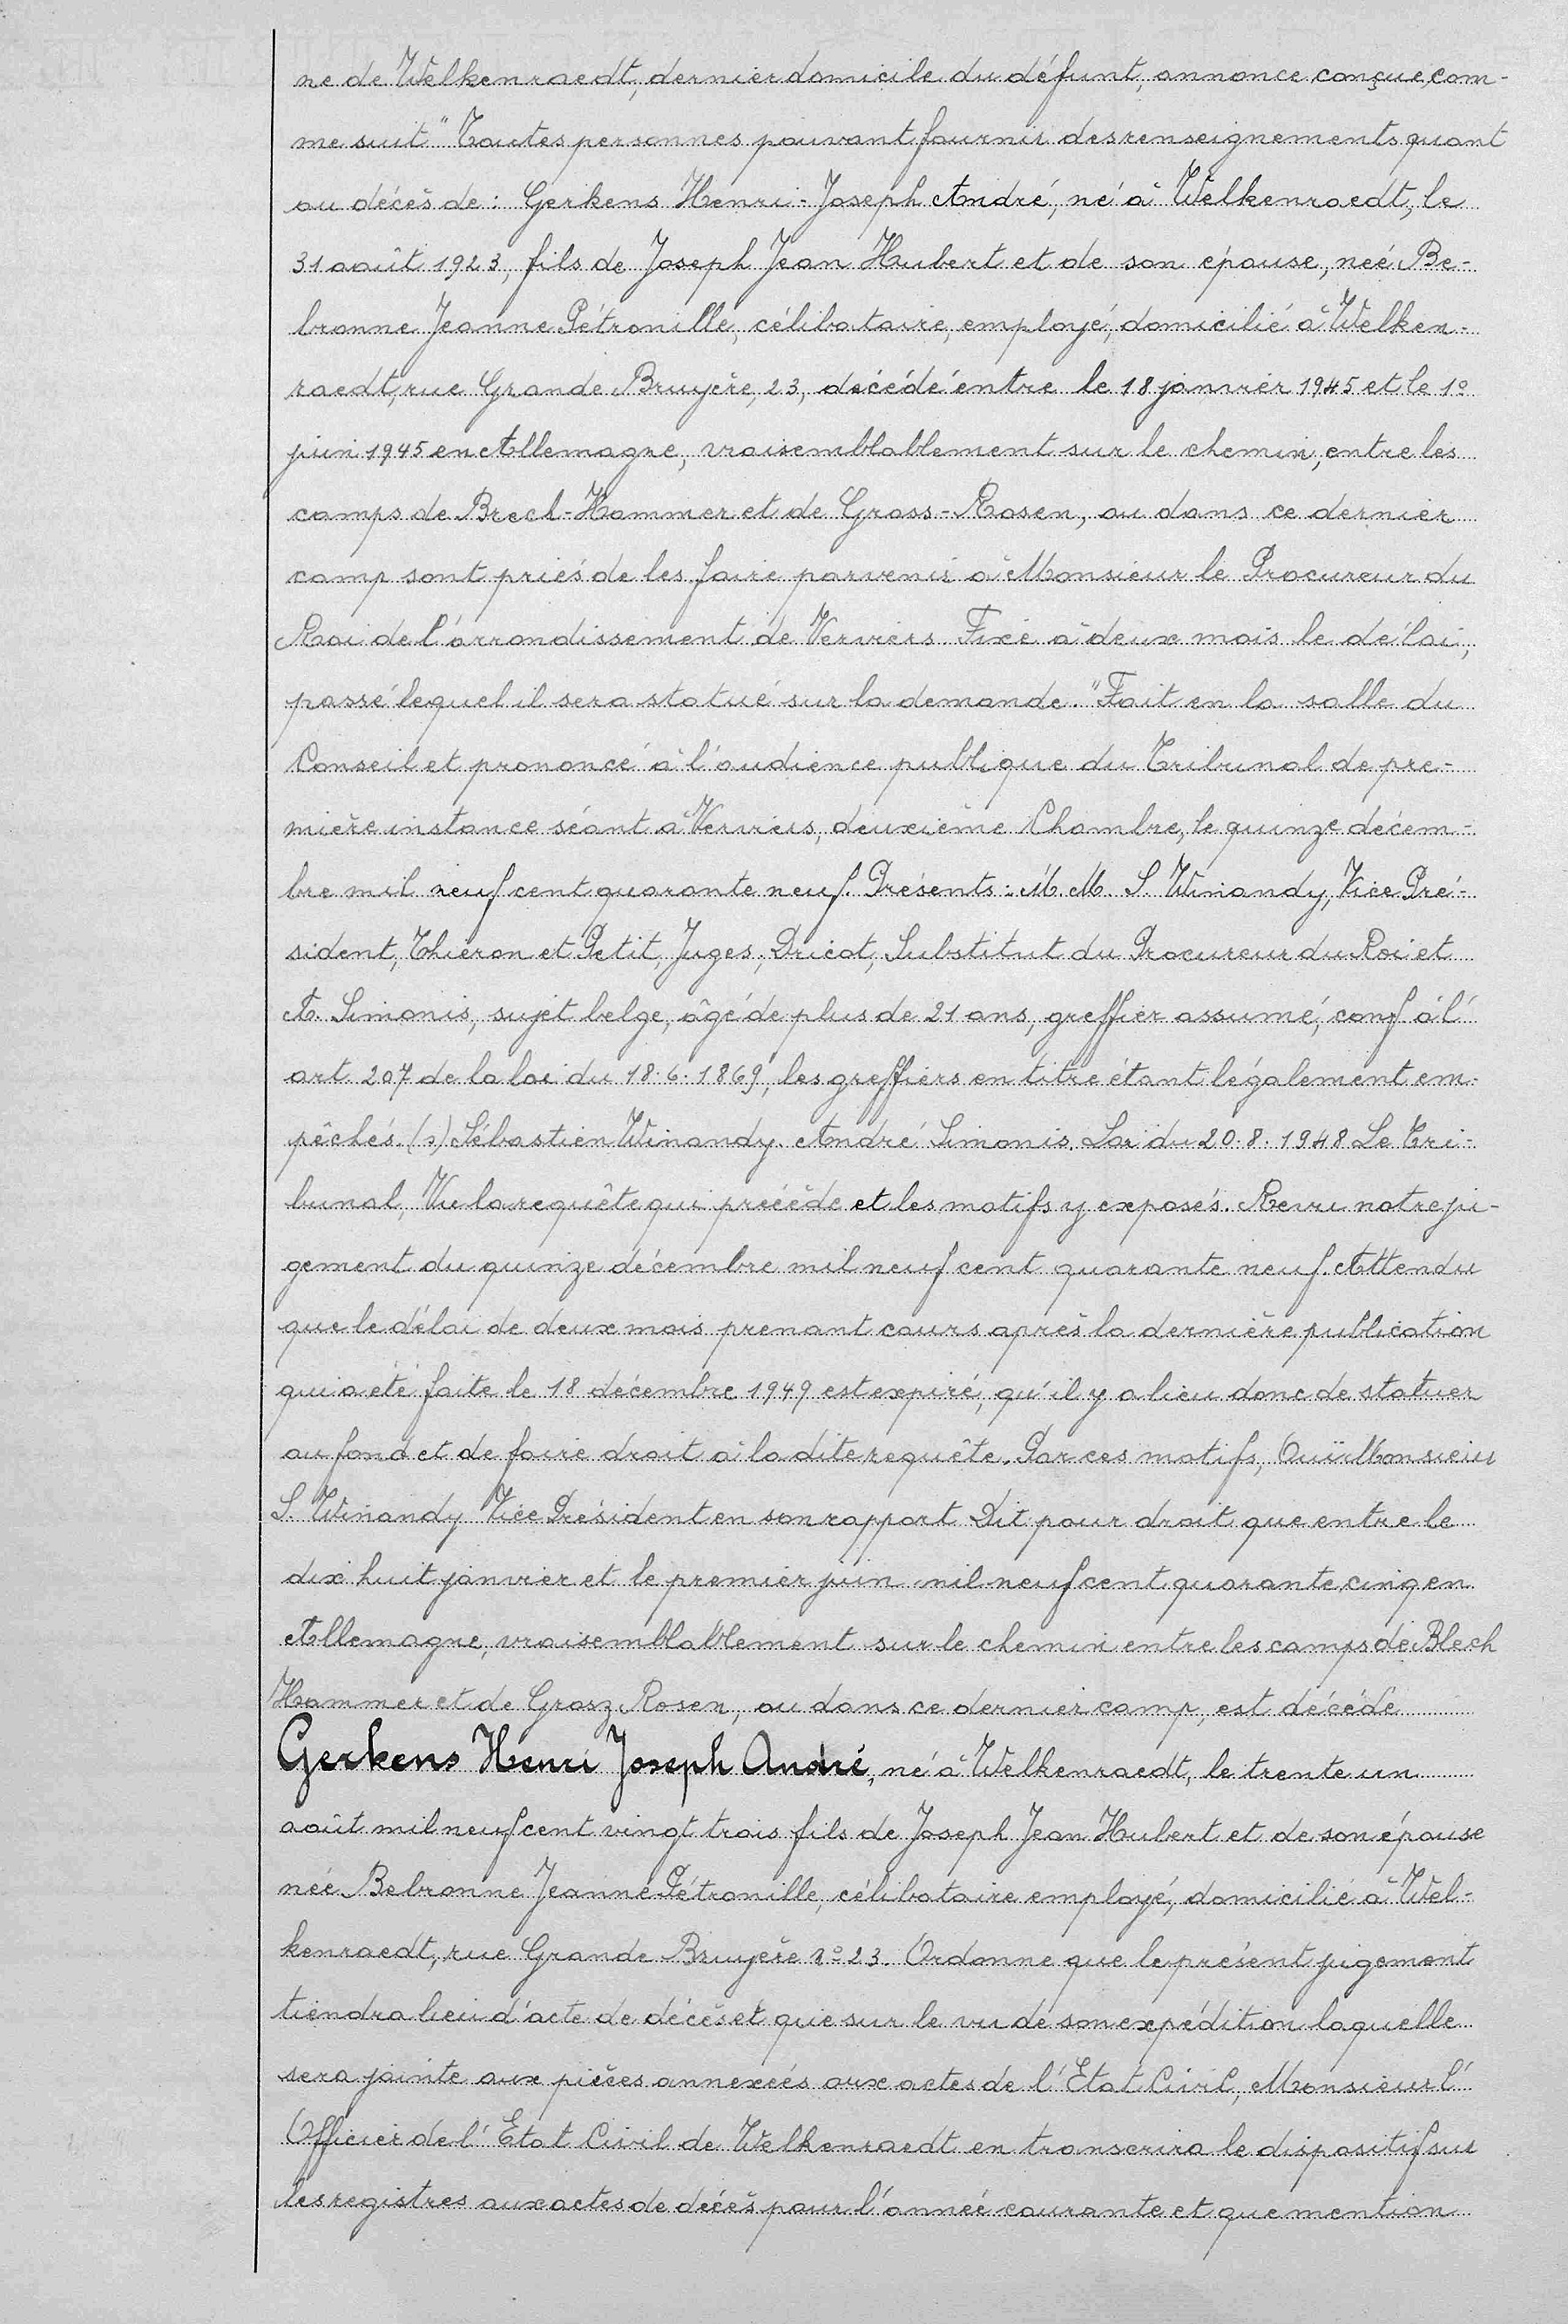 ne de Welkenraedt, dernier domicile du défunt, annonce conçue com-
me suit " Toutes personnes pouvant fournir des renseignements quant
au décès de : Gerkens Henri-Joseph André, né à Welkenraedt, le
31 août 1923, fils de Joseph Jean Hubert et de son épouse, neé Be-
bronne Jeanne Pétronille, célibataire, employé, domicilié à Welken-
raedt, rue Grande Bruyère, 23, décédé entre le 18 janvier 1945 et le 1º
juin 1945 en Allemagne, vraisemblablement sur le chemin, entre les
camps de Brech-Hammer et de Gross-Rosen, ou dans ce dernier
camp sont priés de les faire parvenir à Monsieur le Procureur du
Roi de l'arrondissement de Verviers. Fixe à deux mois le délai,
passé lequel il sera statué sur la demande. " Fait en la salle du
Conseil et prononcé à l'audience publique du Tribunal de pre-
mière instance séant à Verviers, deuxième Chambre, le quinze décem-
bre mil neuf cent quarante neuf. Présents : M.M. S. Winandy, Vice Pré-
sident, Thieron et Petit, Juges, Dricot, Substitut du Procureur du Roi et
A. Simonis, sujet belge, âgé de plus de 21 ans, greffier assumé, conf à l'
art. 207 de la loi du 18.6.1869, les greffiers en titre étant légalement em-
pêchés. (s) Sébastien Winandy. André Simonis. Loi du 20.8.1948 Le Tri-
bunal, Vu la requête qui précède et les motifs y exposés. Revu notre ju-
gement du quinze décembre mil neuf cent quarante neuf. Attendu
que le délai de deux mois prenant cours après la dernière publication
qui a été faite le 18 décembre 1949 est expiré, qu'il y a lieu donc de statuer
au fond et de faire droit à la dite requête. Par ces motifs, Ouï Monsieur
S. Winandy Vice Président en son rapport Dit pour droit que entre le
dix huit janvier et le premier juin mil neuf cent quarante cinq en
Allemagne, vraisemblablement sur le chemin entre les camps de Blech
Hammer et de Grosz Rosen, ou dans ce dernier camp, est décédé
Gerkens Henri Joseph André, né à Welkenraedt, le trente un
août mil neuf cent vingt trois fils de Joseph Jean Hubert et de son épouse
née Bebronne Jeanne Pétronille, célibataire employé, domicilié à Wel-
kenraedt, rue Grande Bruyère nº 23. Ordonne que le présent jugement
tiendra lieu d'acte de décès et que sur le vu de son expédition laquelle
sera jointe aux pièces annexées aux actes de l'Etat Civil, Monsieur l'
Officier de l'Etat Civil de Welkenraedt en transcrira le dispositif sur
les registres aux actes de décès pour l'année courante et que mention